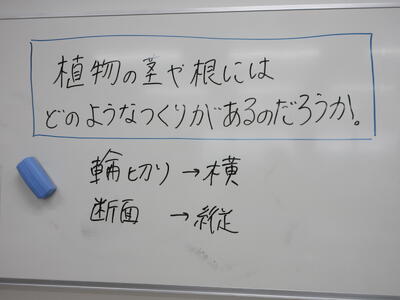 植物の茎や根には
どのようなつくりがあるのだろうか。
輪切り→横
断面 →縦